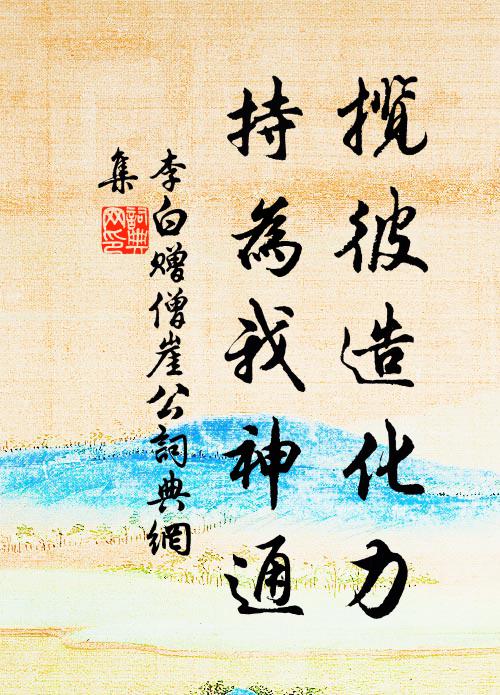 攬彼造化力
持為我神通
李白贈僧崖公詞典網
集
詞典
网印